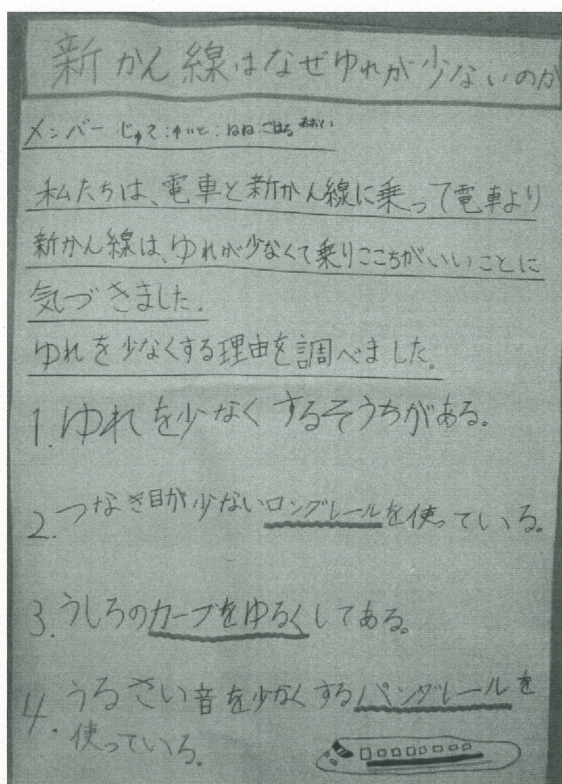 新かん線はなぜゆれが少ないのか
メンバー
私たちは、電車と新かん線に乗って電車より
新かん線は、ゆれが少なくて乗りここちがいいことに
気づきました。
ゆれを少なくする理由を調べました。
1.ゆれを少なくするそうちがある。
2.つなぎ目が少ないロングレールを使っている。
3.うしろのカーブをゆるくしてある。
4.うるさい音を少なくするパングレールを
使っている。